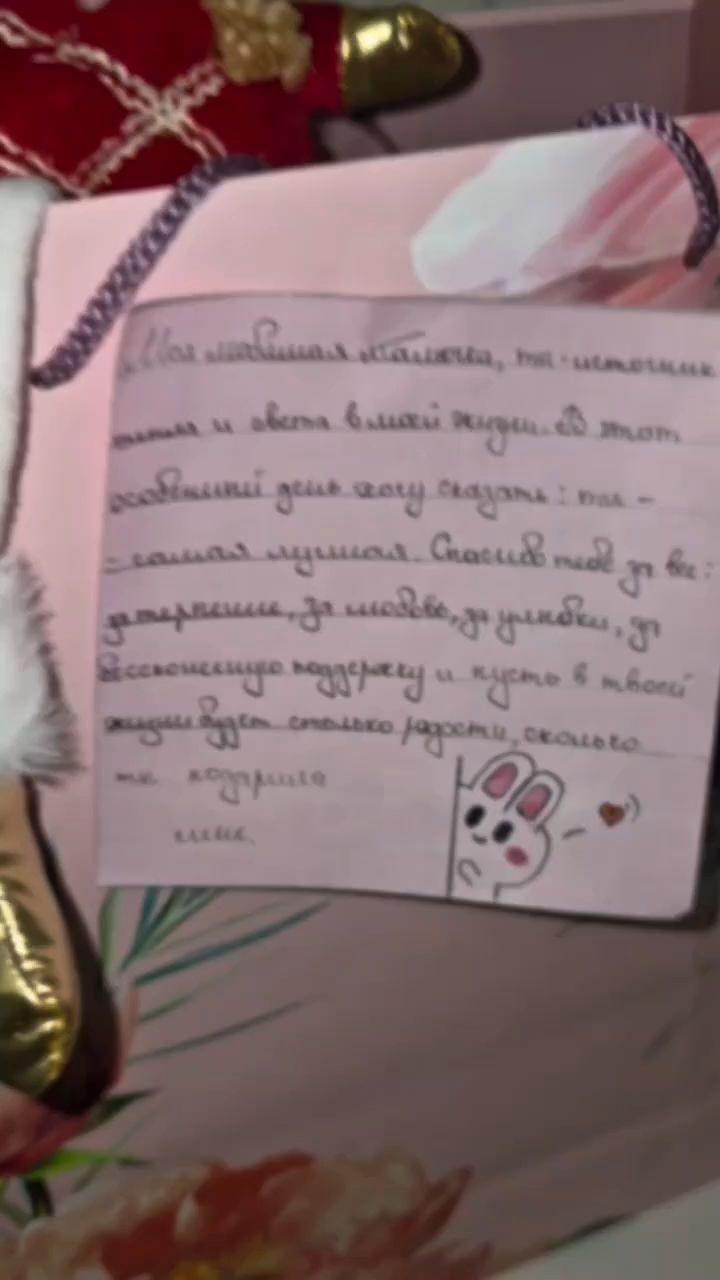 Моя любимая мамочка, ты - источник
тепла и света в моей жизни. В этот
особенный день хочу сказать: ты -
- самая лучшая. Спасибо тебе за все:
за терпение, за любовь, за улыбки, за
бесконечную поддержку и пусть в твоей
жизни будет столько радости, сколько
ты подарила
мне.